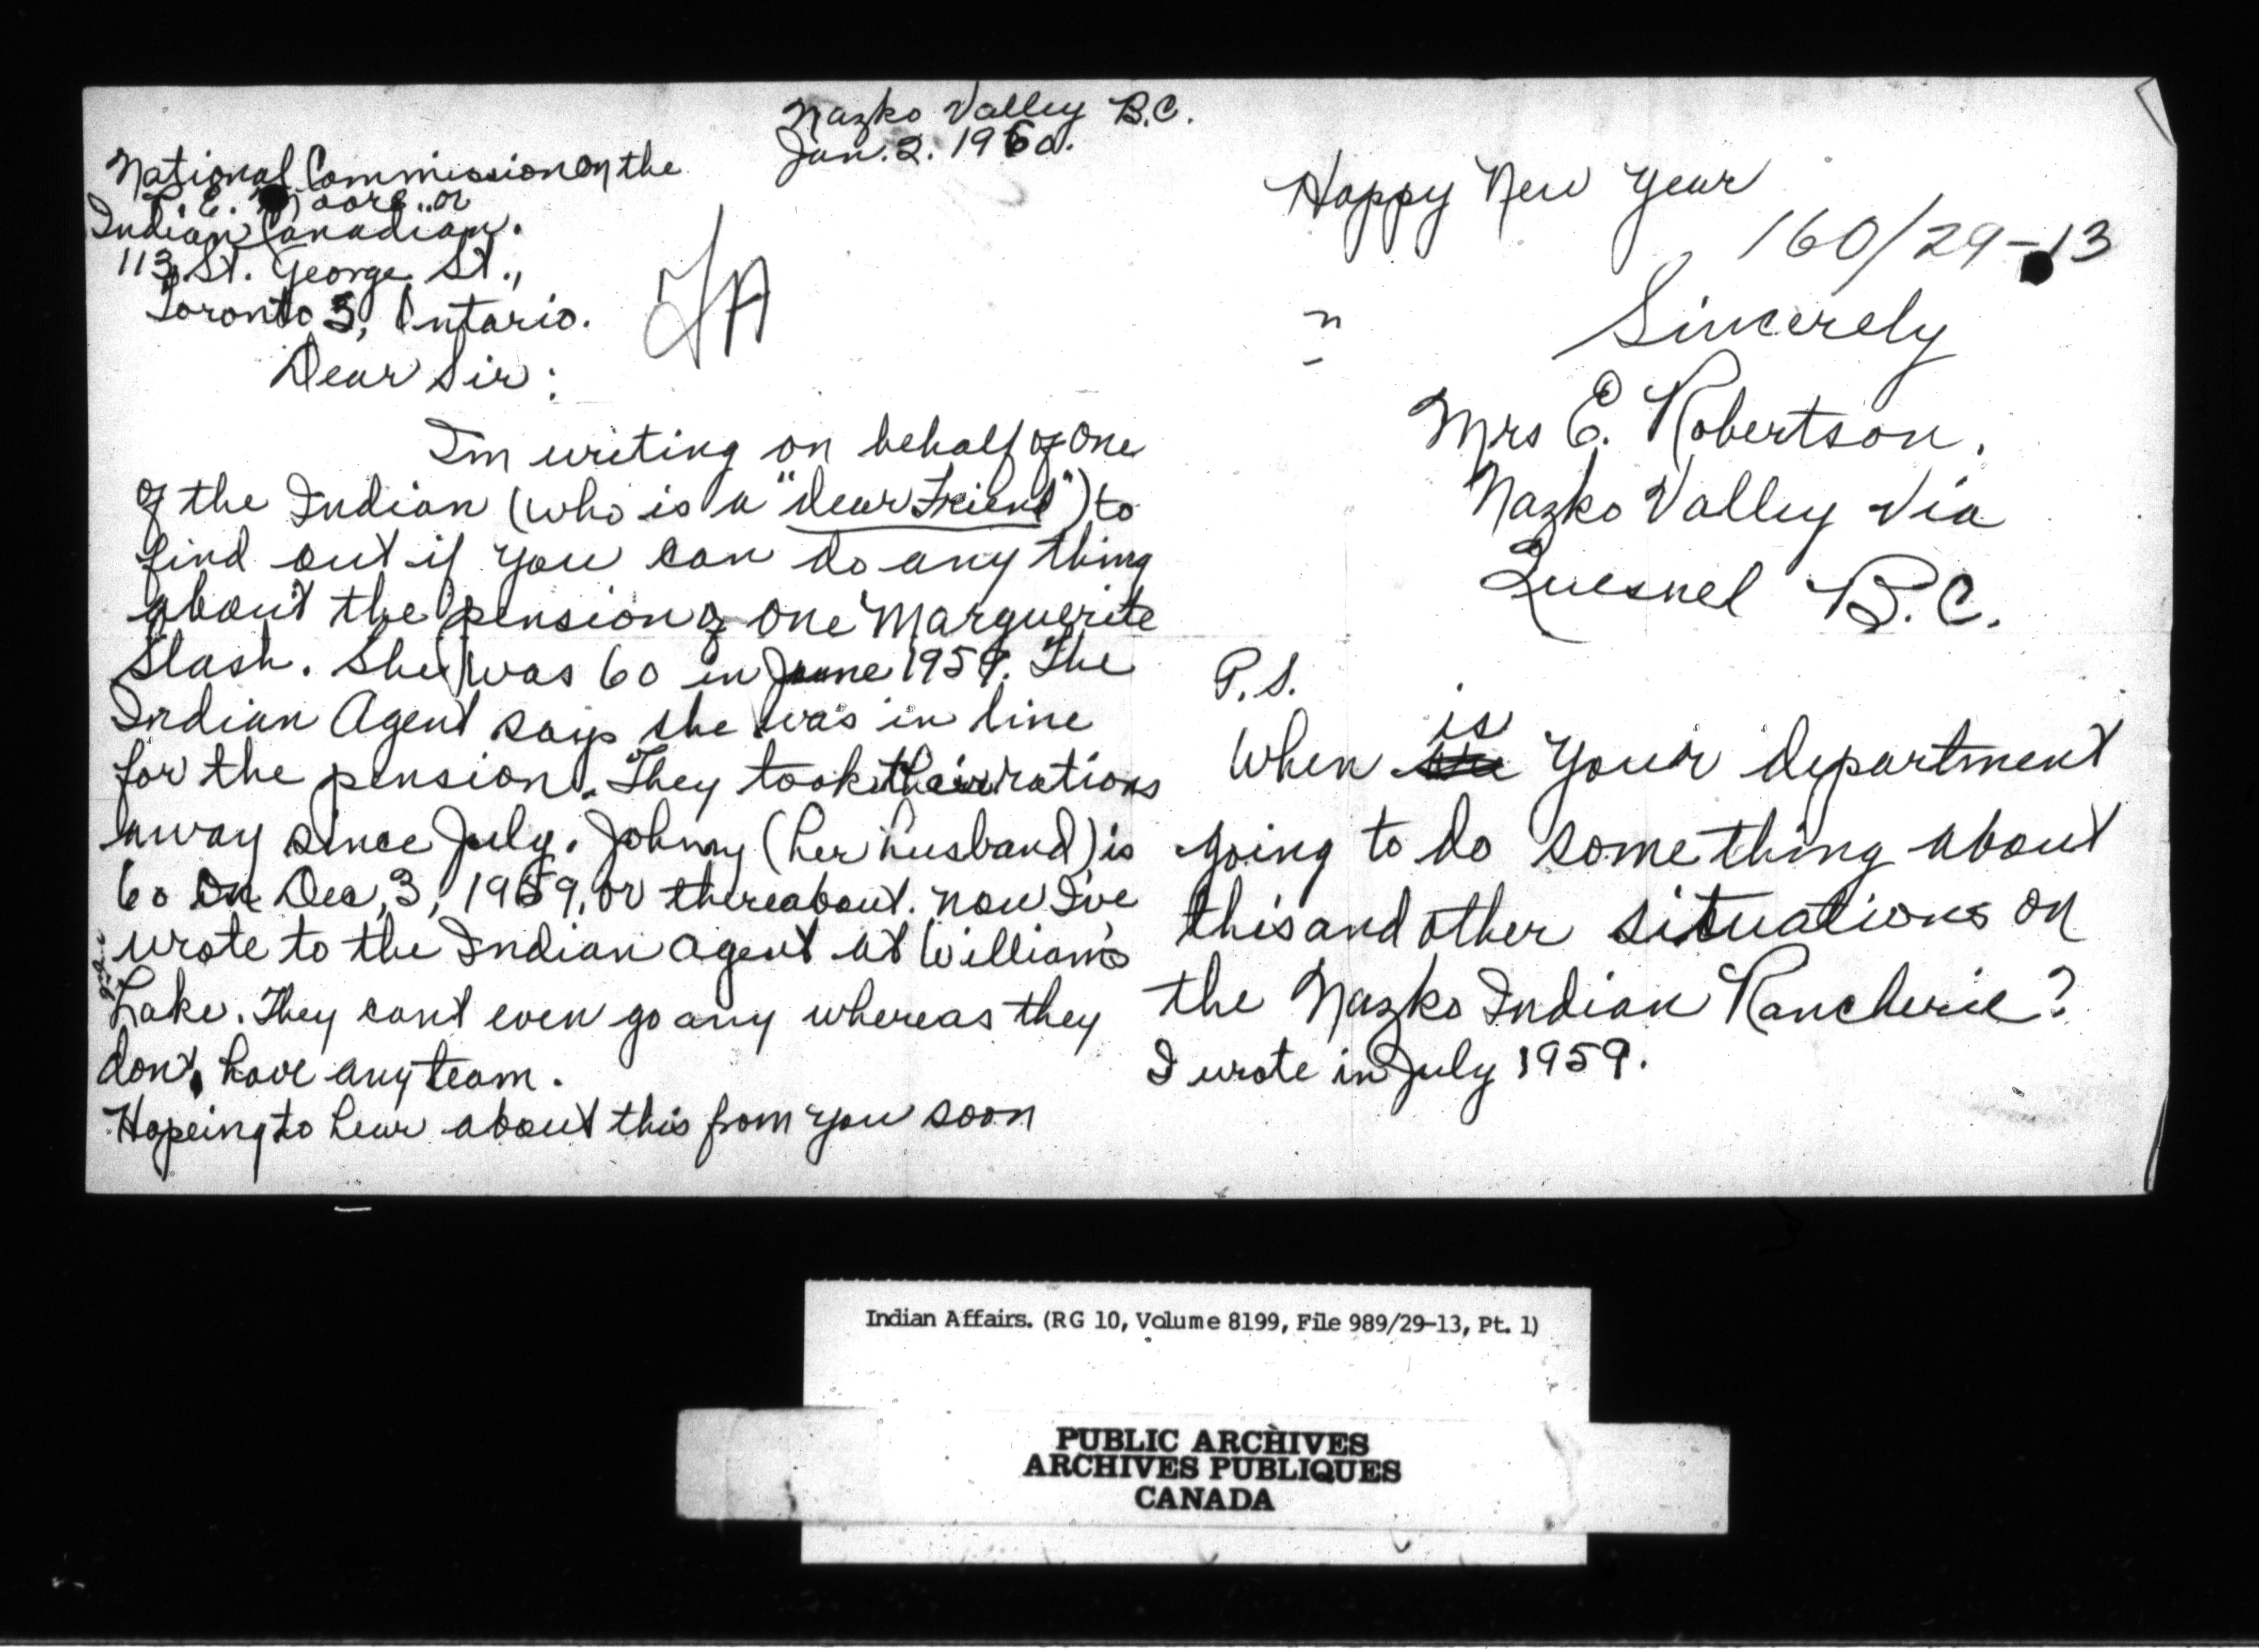 Nazko Valley B.C.
Jan. 2. 1960.
National Commission on the
T. E. Moore..or
Indian Canadian.
113, St. George St.,
Toronto 5, Ontario.
Dear Sir:
I'm writing on behalf of one
of the Indian (who is a "dear Friend") to
find out if you can do any thing
about the pension of one Marguerite
Slash. She was 60 in June 1959. The
Indian Agent says she was in line
for the pension. They took their rations
away since July. Johnny (her husband) is
60 on Dec, 3, 1959, or thereabout. now I've
wrote to the Indian agent at William's
Lake. They cant even go any whereas they
don't have any team.
Hopeing to hear about this from you soon
Happy New Year
160/29-13
Sincerely
Mrs E. Robertson.
Nazko Valley Via
Quesnel B.C.
P.S.
When is your department
going to do something about
this and other situations on
the Nazko Indian Rancherie?
I wrote in July 1959.
Indian Affairs. (RG 10, Volume 8199, File 989/29-13, Pt. 1)
PUBLIC ARCHIVES
ARCHIVES PUBLIQUES
CANADA